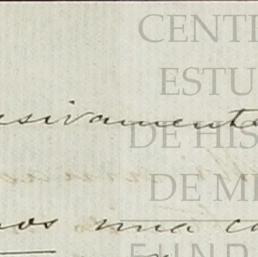 CENT
ESTU
esivamente
DE HIS
DE M
nos una c
FUND